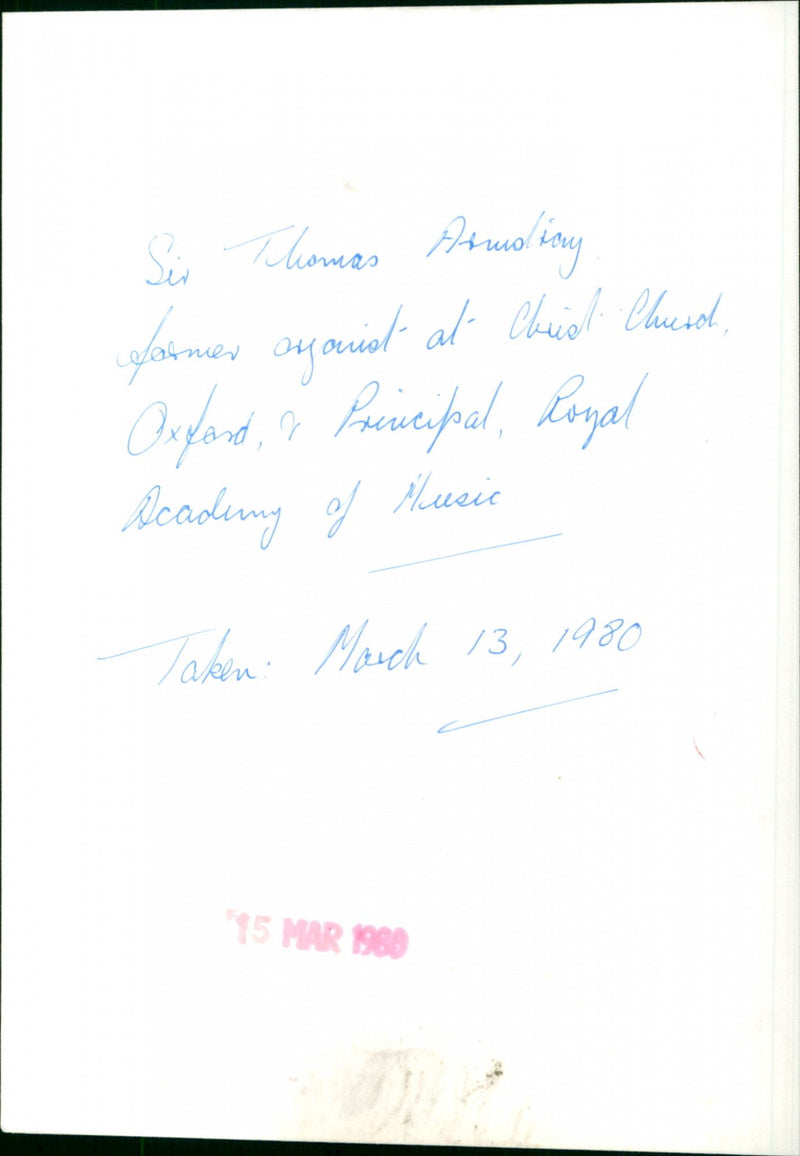 Sir Thomas Armstrong
former organist at Christ Church,
Oxford, & Principal, Royal
Academy of Music
Taken: March 13, 1980
15 MAR 1980